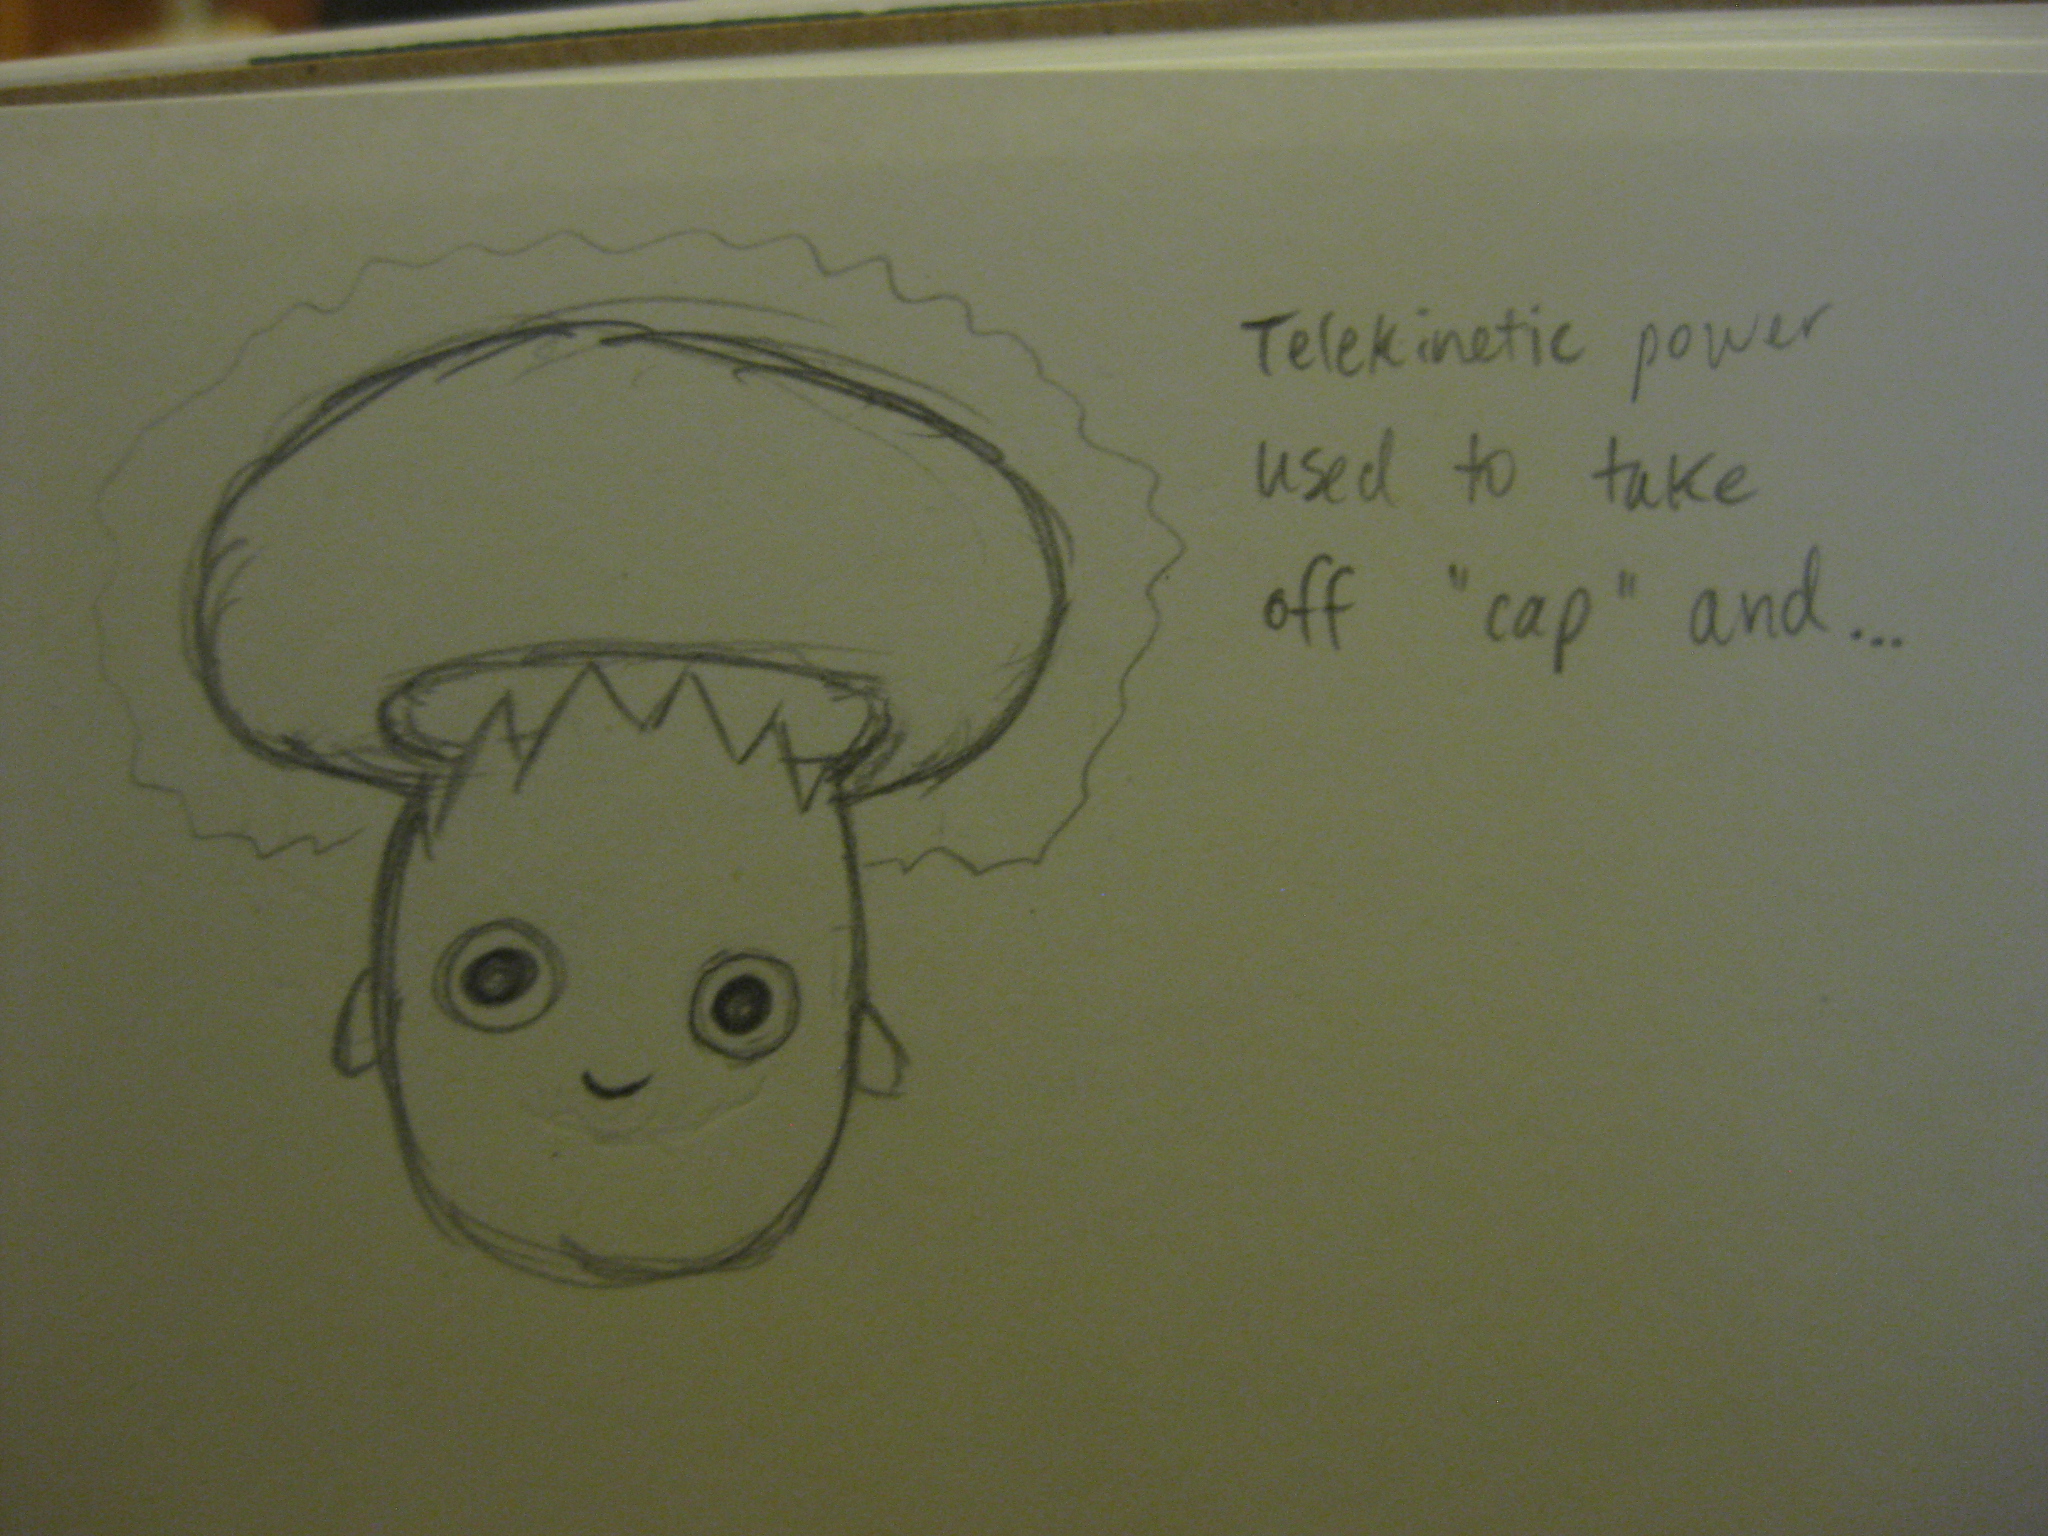 Telekinetic power
used to take
off "cap" and...